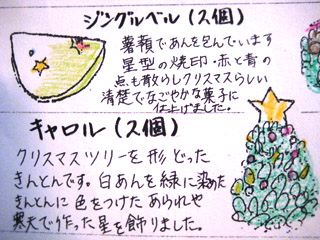 ジングルベル(2個)
薯蕷であんを包んでいます
星型の焼印・赤と青の
点も散らしクリスマスらしい
清楚でなごやかな菓子に
仕上げました。
キャロル(2個)
クリスマスツリーを形どった
きんとんです。白あんを緑に染めた
きんとんに色をつけたあられや
寒天で作った星を飾りました。